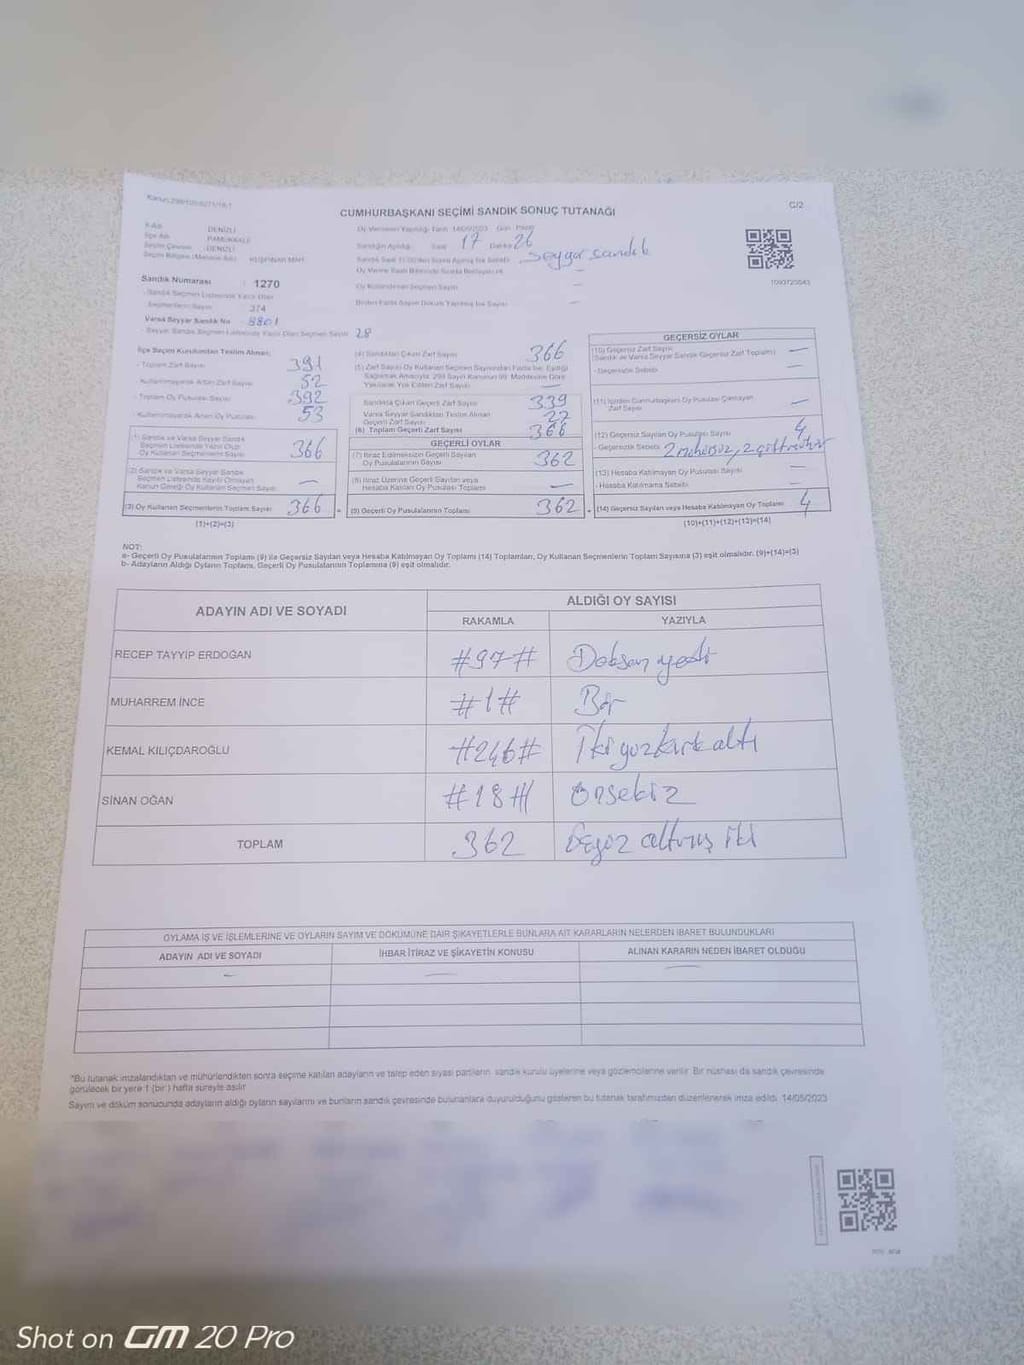 CUMHURBAŞKANI SEÇİMİ SANDIK SONUÇ TUTANAĞI
C/2
İli Adı DENİZLİ
İlçe Adı PAMUKKALE
Seçim Çevresi DENİZLİ
Oy Vermenin Yapıldığı Tarih 14/05/2023 Gün Pazar
Sandığın Açıldığı Saat 17 Dakika 26
Seyyar sandık
Oy Kullandırılan Seçmen Sayısı
Birden Fazla Sayım Döküm Yapılmış İse Sayısı
1093720043
Sandık Numarası : 1270
Sandık Seçmen Listesinde Yazılı Olan
Seçmenlerin Sayısı 374
Varsa Seyyar Sandık No 8801
Seyyar Sandık Seçmen Listesinde Yazılı Olan Seçmen Sayısı 28
İlçe Seçim Kurulundan Teslim Alınan;
- Toplam Zarf Sayısı 391
- Kullanılmayarak Artan Zarf Sayısı 52
- Toplam Oy Pusulası Sayısı 392
- Kullanılmayarak Artan Oy Pusulası 53
(1) Sandık ve Varsa Seyyar Sandık
Seçmen Listesinde Yazılı Olup
Oy Kullanan Seçmenlerin Sayısı 366
(2) Sandık ve Varsa Seyyar Sandık
Seçmen Listesinde Kayıtlı Olmayan
Kanun Gereği Oy Kullanan Seçmen Sayısı —
(3) Oy Kullanan Seçmenlerin Toplam Sayısı 366
(1)+(2)=(3)
(4) Sandıktan Çıkan Zarf Sayısı 366
(5) Zarf Sayısı Oy Kullanan Seçmen Sayısından Fazla İse, Eşitliği
Sağlamak Amacıyla, 298 Sayılı Kanunun 98. Maddesine Göre
Yakılarak Yok Edilen Zarf Sayısı —
Sandıkta Çıkan Geçerli Zarf Sayısı 339
Varsa Seyyar Sandıktan Teslim Alınan
Geçerli Zarf Sayısı 27
(6) Toplam Geçerli Zarf Sayısı 366
GEÇERLİ OYLAR
(7) İtiraz Edilmeksizin Geçerli Sayılan
Oy Pusulalarının Sayısı 362
(8) İtiraz Üzerine Geçerli Sayılan veya
Hesaba Katılan Oy Pusulaları Toplamı —
(9) Geçerli Oy Pusulalarının Toplamı 362
GEÇERSİZ OYLAR
(10) Geçersiz Zarf Sayısı
(Sandık ve Varsa Seyyar Sandık Geçersiz Zarf Toplamı) —
- Geçersizlik Sebebi —
(11) İçinden Cumhurbaşkanı Oy Pusulası Çıkmayan
Zarf Sayısı —
(12) Geçersiz Sayılan Oy Pusulası Sayısı 4
- Geçersizlik Sebebi 2 mühürsüz, 2 çift mühür
(13) Hesaba Katılmayan Oy Pusulası Sayısı —
- Hesaba Katılmama Sebebi —
(14) Geçersiz Sayılan veya Hesaba Katılmayan Oy Toplamı 4
(10)+(11)+(12)+(13)=(14)
NOT:
a- Geçerli Oy Pusulalarının Toplamı (9) ile Geçersiz Sayılan veya Hesaba Katılmayan Oy Toplamı (14) Toplamları, Oy Kullanan Seçmenlerin Toplam Sayısına (3) eşit olmalıdır. (9)+(14)=(3)
b- Adayların Aldığı Oyların Toplamı, Geçerli Oy Pusulalarının Toplamına (9) eşit olmalıdır.
ADAYIN ADI VE SOYADI
ALDIĞI OY SAYISI
RAKAMLA YAZIYLA
RECEP TAYYİP ERDOĞAN #97# Doksan yedi
MUHARREM İNCE #1# Bir
KEMAL KILIÇDAROĞLU #246# İki yüz kırk altı
SİNAN OĞAN #18# Onsekiz
TOPLAM 362 altmış iki
OYLAMA İŞ VE İŞLEMLERİNE VE OYLARIN SAYIM VE DÖKÜMÜNE DAİR ŞİKAYETLERLE BUNLARA AİT KARARLARIN NELERDEN İBARET BULUNDUKLARI
ADAYIN ADI VE SOYADI İHBAR İTİRAZ VE ŞİKAYETİN KONUSU ALINAN KARARIN NEDEN İBARET OLDUĞU
— — —
*Bu tutanak imzalandıktan ve mühürlendikten sonra seçime katılan adayların ve talep eden siyasi partilerin sandık kurulu üyelerine veya gözlemcilerine verilir. Bir nüshası da sandık çevresinde
görülecek bir yere 1 (bir) hafta süreyle asılır.
Sayım ve döküm sonucunda adayların aldığı oyların sayılarını ve bunların sandık çevresinde bulunanlara duyurulduğunu gösteren bu tutanak tarafımızdan düzenlenerek imza edildi. 14/05/2023
Shot on GM 20 Pro